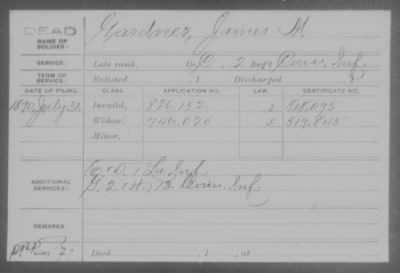 DEAD
NAME OF SOLDIER: Gardner, James M.
SERVICE: Late rank, Co. 2 Reg't Conn. Inf.
TERM OF SERVICE: Enlisted , 1 Discharged , 1
DATE OF FILING. CLASS. APPLICATION NO. LAW. CERTIFICATE NO.
1890 July 31. Invalid, 826,132 818,095
Widow, 746,020 519,845
Minor,
ADDITIONAL SERVICES: 1 La. Inf.
G. 2 & H. 13 Conn. Inf.
REMARKS:
Died , 1 , at